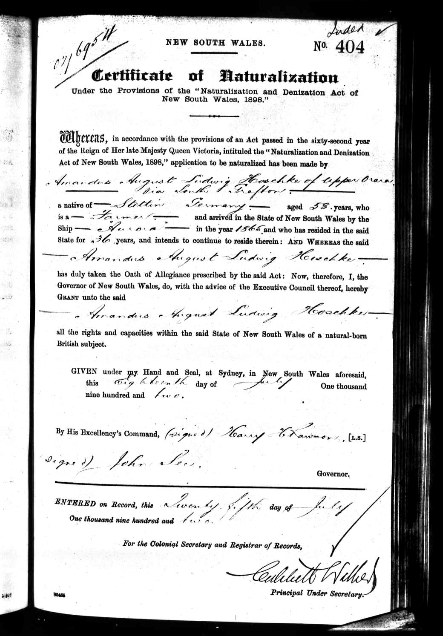 Indexed
02/6954
NEW SOUTH WALES.
No. 404
Certificate of Naturalization
Under the Provisions of the "Naturalization and Denization Act of
New South Wales, 1898."
Whereas, in accordance with the provisions of an Act passed in the sixty-second year
of the Reign of Her late Majesty Queen Victoria, intituled the "Naturalization and Denization
Act of New South Wales, 1898," application to be naturalized has been made by
Amandus August Ludwig Heschke of Upper Orara
via South Grafton
a native of Stettin Germany aged 58 years, who
is a Farmer and arrived in the State of New South Wales by the
Ship Aurora in the year 1866 and who has resided in the said
State for 36 years, and intends to continue to reside therein: AND WHEREAS the said
Amandus August Ludwig Heschke
has duly taken the Oath of Allegiance prescribed by the said Act: Now, therefore, I, the
Governor of New South Wales, do, with the advice of the Executive Council thereof, hereby
GRANT unto the said
Amandus August Ludwig Heschke
all the rights and capacities within the said State of New South Wales of a natural-born
British subject.
GIVEN under my Hand and Seal, at Sydney, in New South Wales aforesaid,
this Eighteenth day of July One thousand
nine hundred and two.
By His Excellency's Command, (signed) Harry H Rawson. [L.S.]
signed) John See.
Governor.
ENTERED on Record, this Twenty fifth day of July
One thousand nine hundred and two
For the Colonial Secretary and Registrar of Records,
Critchett Walker
Principal Under Secretary.